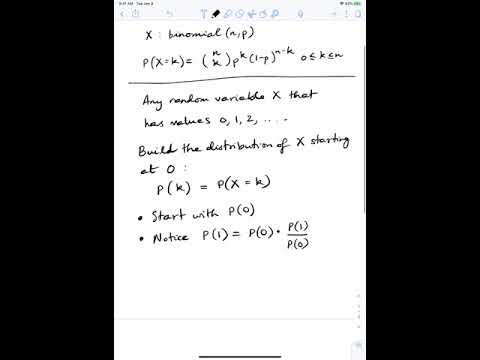 9:41 AM Tue Jan 9
X : binomial (n, p)
P(X=k) = (n k) p^k (1-p)^n-k 0 ≤ k ≤ n
Any random variable X that
has values 0, 1, 2, ....
Build the distribution of X starting
at 0 :
P(k) = P(X = k)
• Start with P(0)
• Notice P(1) = P(0) · P(1)/P(0)